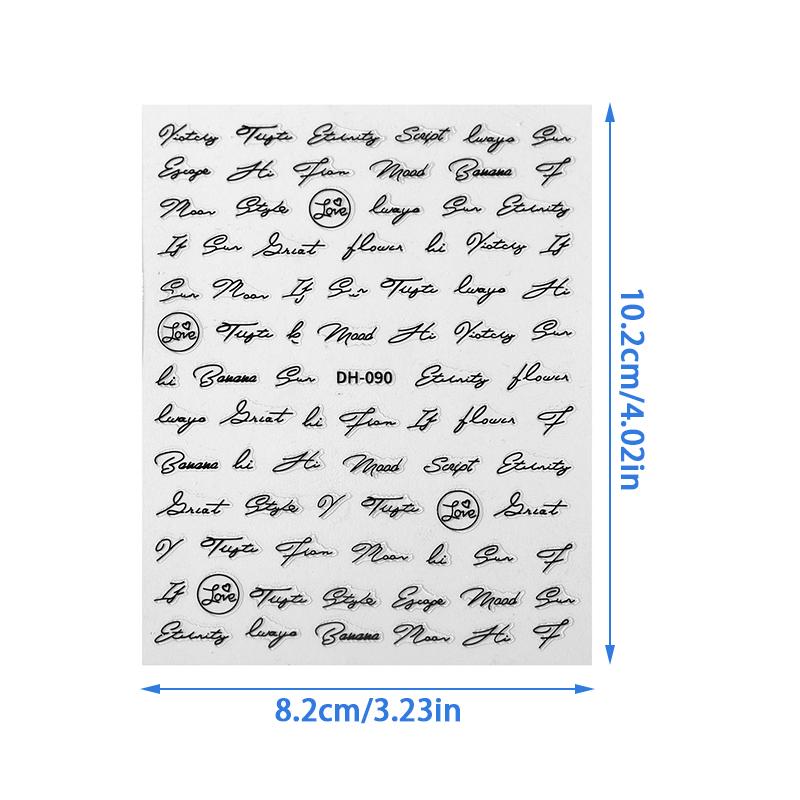 Victory Tugte Eternity Script lwayo Sun
Escape Hi Fian Mood Banana F
Moon Style Love lwayo Sun Eternity
If Sun Great flower hi Victory If
Sun Moon If Sun Tugte lwayo Hi
Love Tugte Mood Hi Victory Sun
hi Banana Sun DH-090 Eternity flower
lwayo Great hi Fian If flower F
Banana hi Hi Mood Script Eternity
Great Style Y Tugte Love Great
Y Tugte Fian Moon hi Sun F
If Love Tugte Style Escape Mood Sun
Eternity lwayo Banana Moon Hi F
10.2cm/4.02in
8.2cm/3.23in